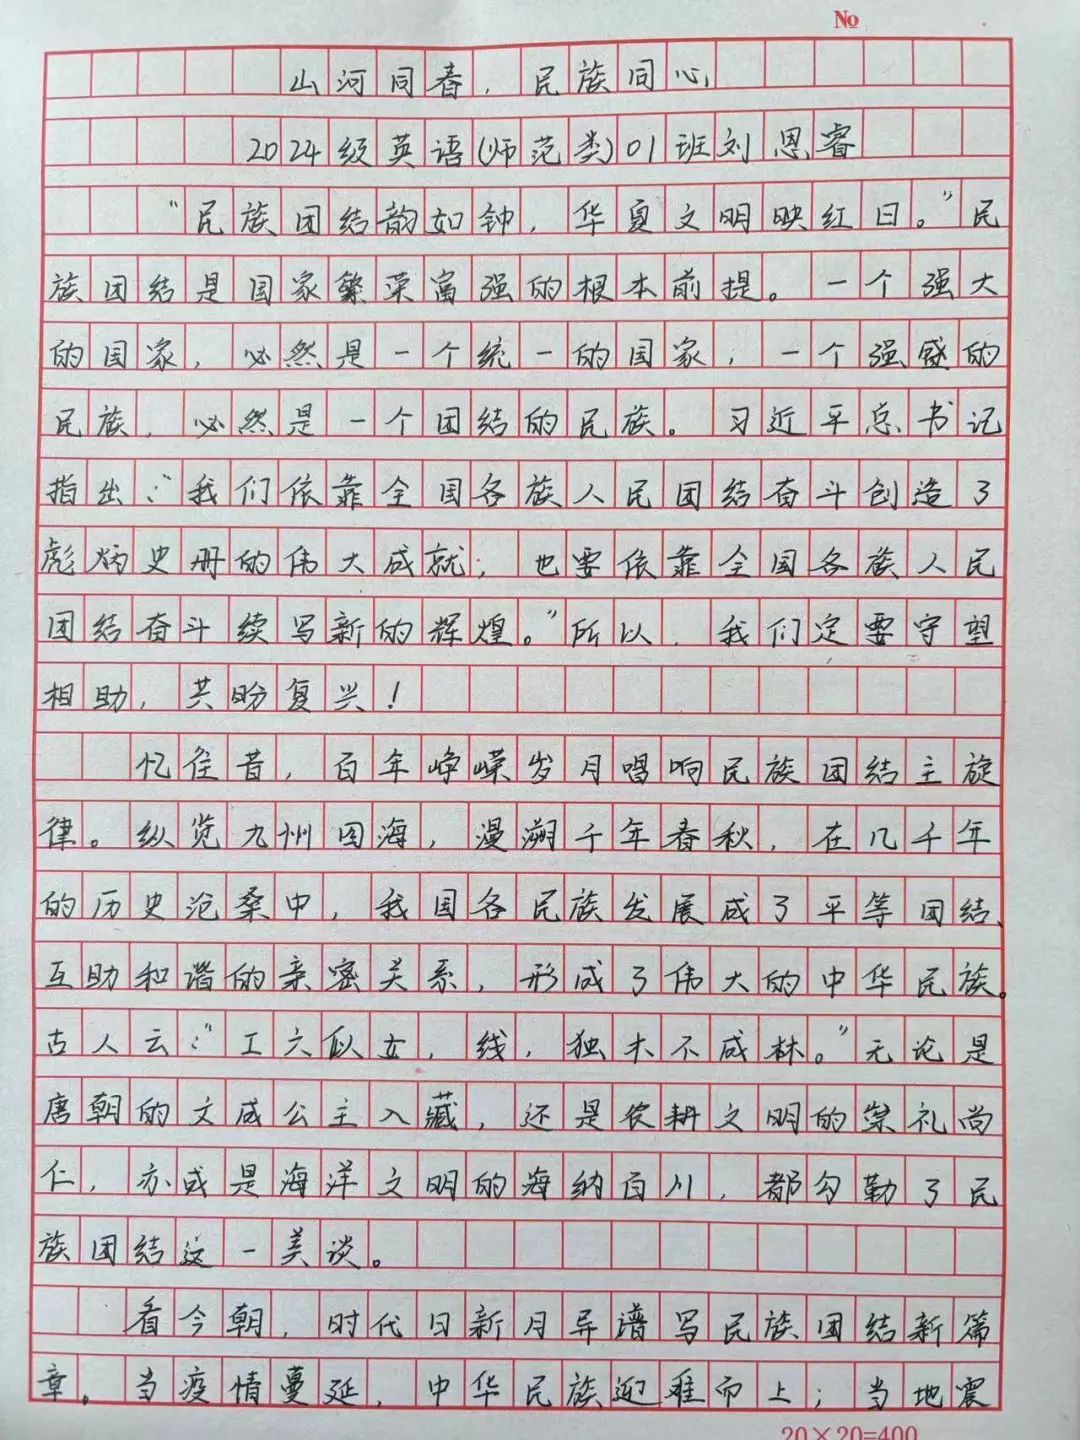 №
山河同春，民族同心
2024级英语(师范类)01班刘恩睿
“民族团结韵如钟，华夏文明映红日。”民
族团结是国家繁荣富强的根本前提。一个强大
的国家，必然是一个统一的国家，一个强盛的
民族，必然是一个团结的民族。习近平总书记
指出：“我们依靠全国各族人民团结奋斗创造了
彪炳史册的伟大成就；也要依靠全国各族人民
团结奋斗续写新的辉煌。”所以，我们定要守望
相助，共盼复兴！
忆往昔，百年峥嵘岁月唱响民族团结主旋
律。纵览九州四海，漫溯千年春秋，在几千年
的历史沧桑中，我国各民族发展成了平等团结、
互助和谐的亲密关系，形成了伟大的中华民族。
古人云：“工六似女，线，独木不成林。”无论是
唐朝的文成公主入藏，还是农耕文明的崇礼尚
仁，亦或是海洋文明的海纳百川，都勾勒了民
族团结这一美谈。
看今朝，时代日新月异谱写民族团结新篇
章。当疫情蔓延，中华民族迎难而上；当地震
20×20=400